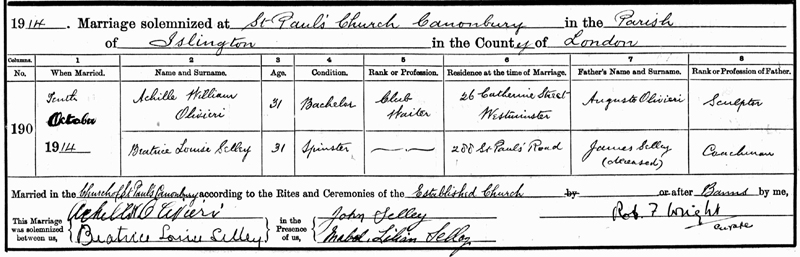 1914. Marriage solemnized at St Paul's Church Canonbury in the Parish
of Islington in the County of London
Columns. 1 2 3 4 5 6 7 8
No. When Married. Name and Surname. Age. Condition. Rank or Profession. Residence at the time of Marriage. Father's Name and Surname. Rank or Profession of Father.
190
Tenth October 1914
Achille William Olivieri 31 Bachelor Club Waiter 26 Catherine Street Westminster Auguste Olivieri Sculptor
Beatrice Louise Selley 31 Spinster — 288 St Paul's Road James Selley (deceased) Coachman
Married in the Church of St Paul's Canonbury according to the Rites and Ceremonies of the Established Church by or after Banns by me,
This Marriage was solemnized between us, Achille Olivieri in the Presence of us, John Selley Rob. F. Wright
Beatrice Louise Selley Mabel Lilian Selley Curate